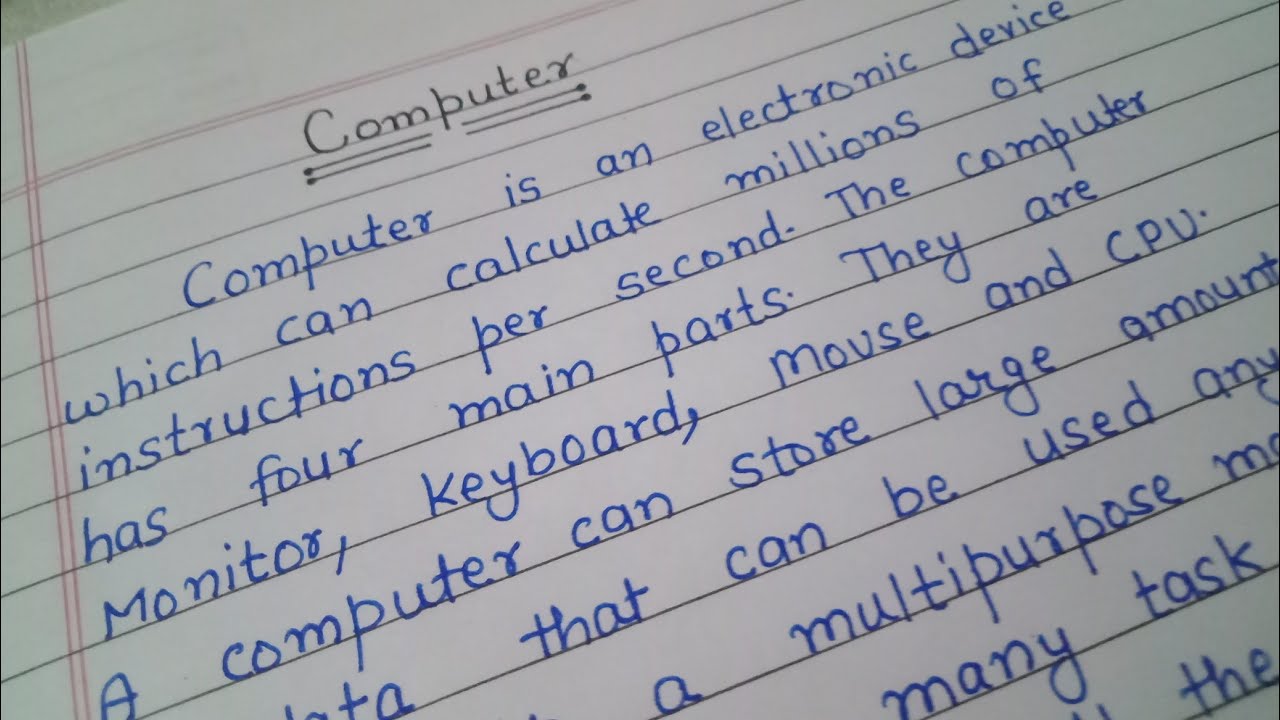 Computer
Computer is an electronic device
which can calculate millions of
instructions per second. The computer
has four main parts. They are
Monitor, Keyboard, mouse and CPU.
A computer can store large amount
that can be used any
a multipurpose
many task
the